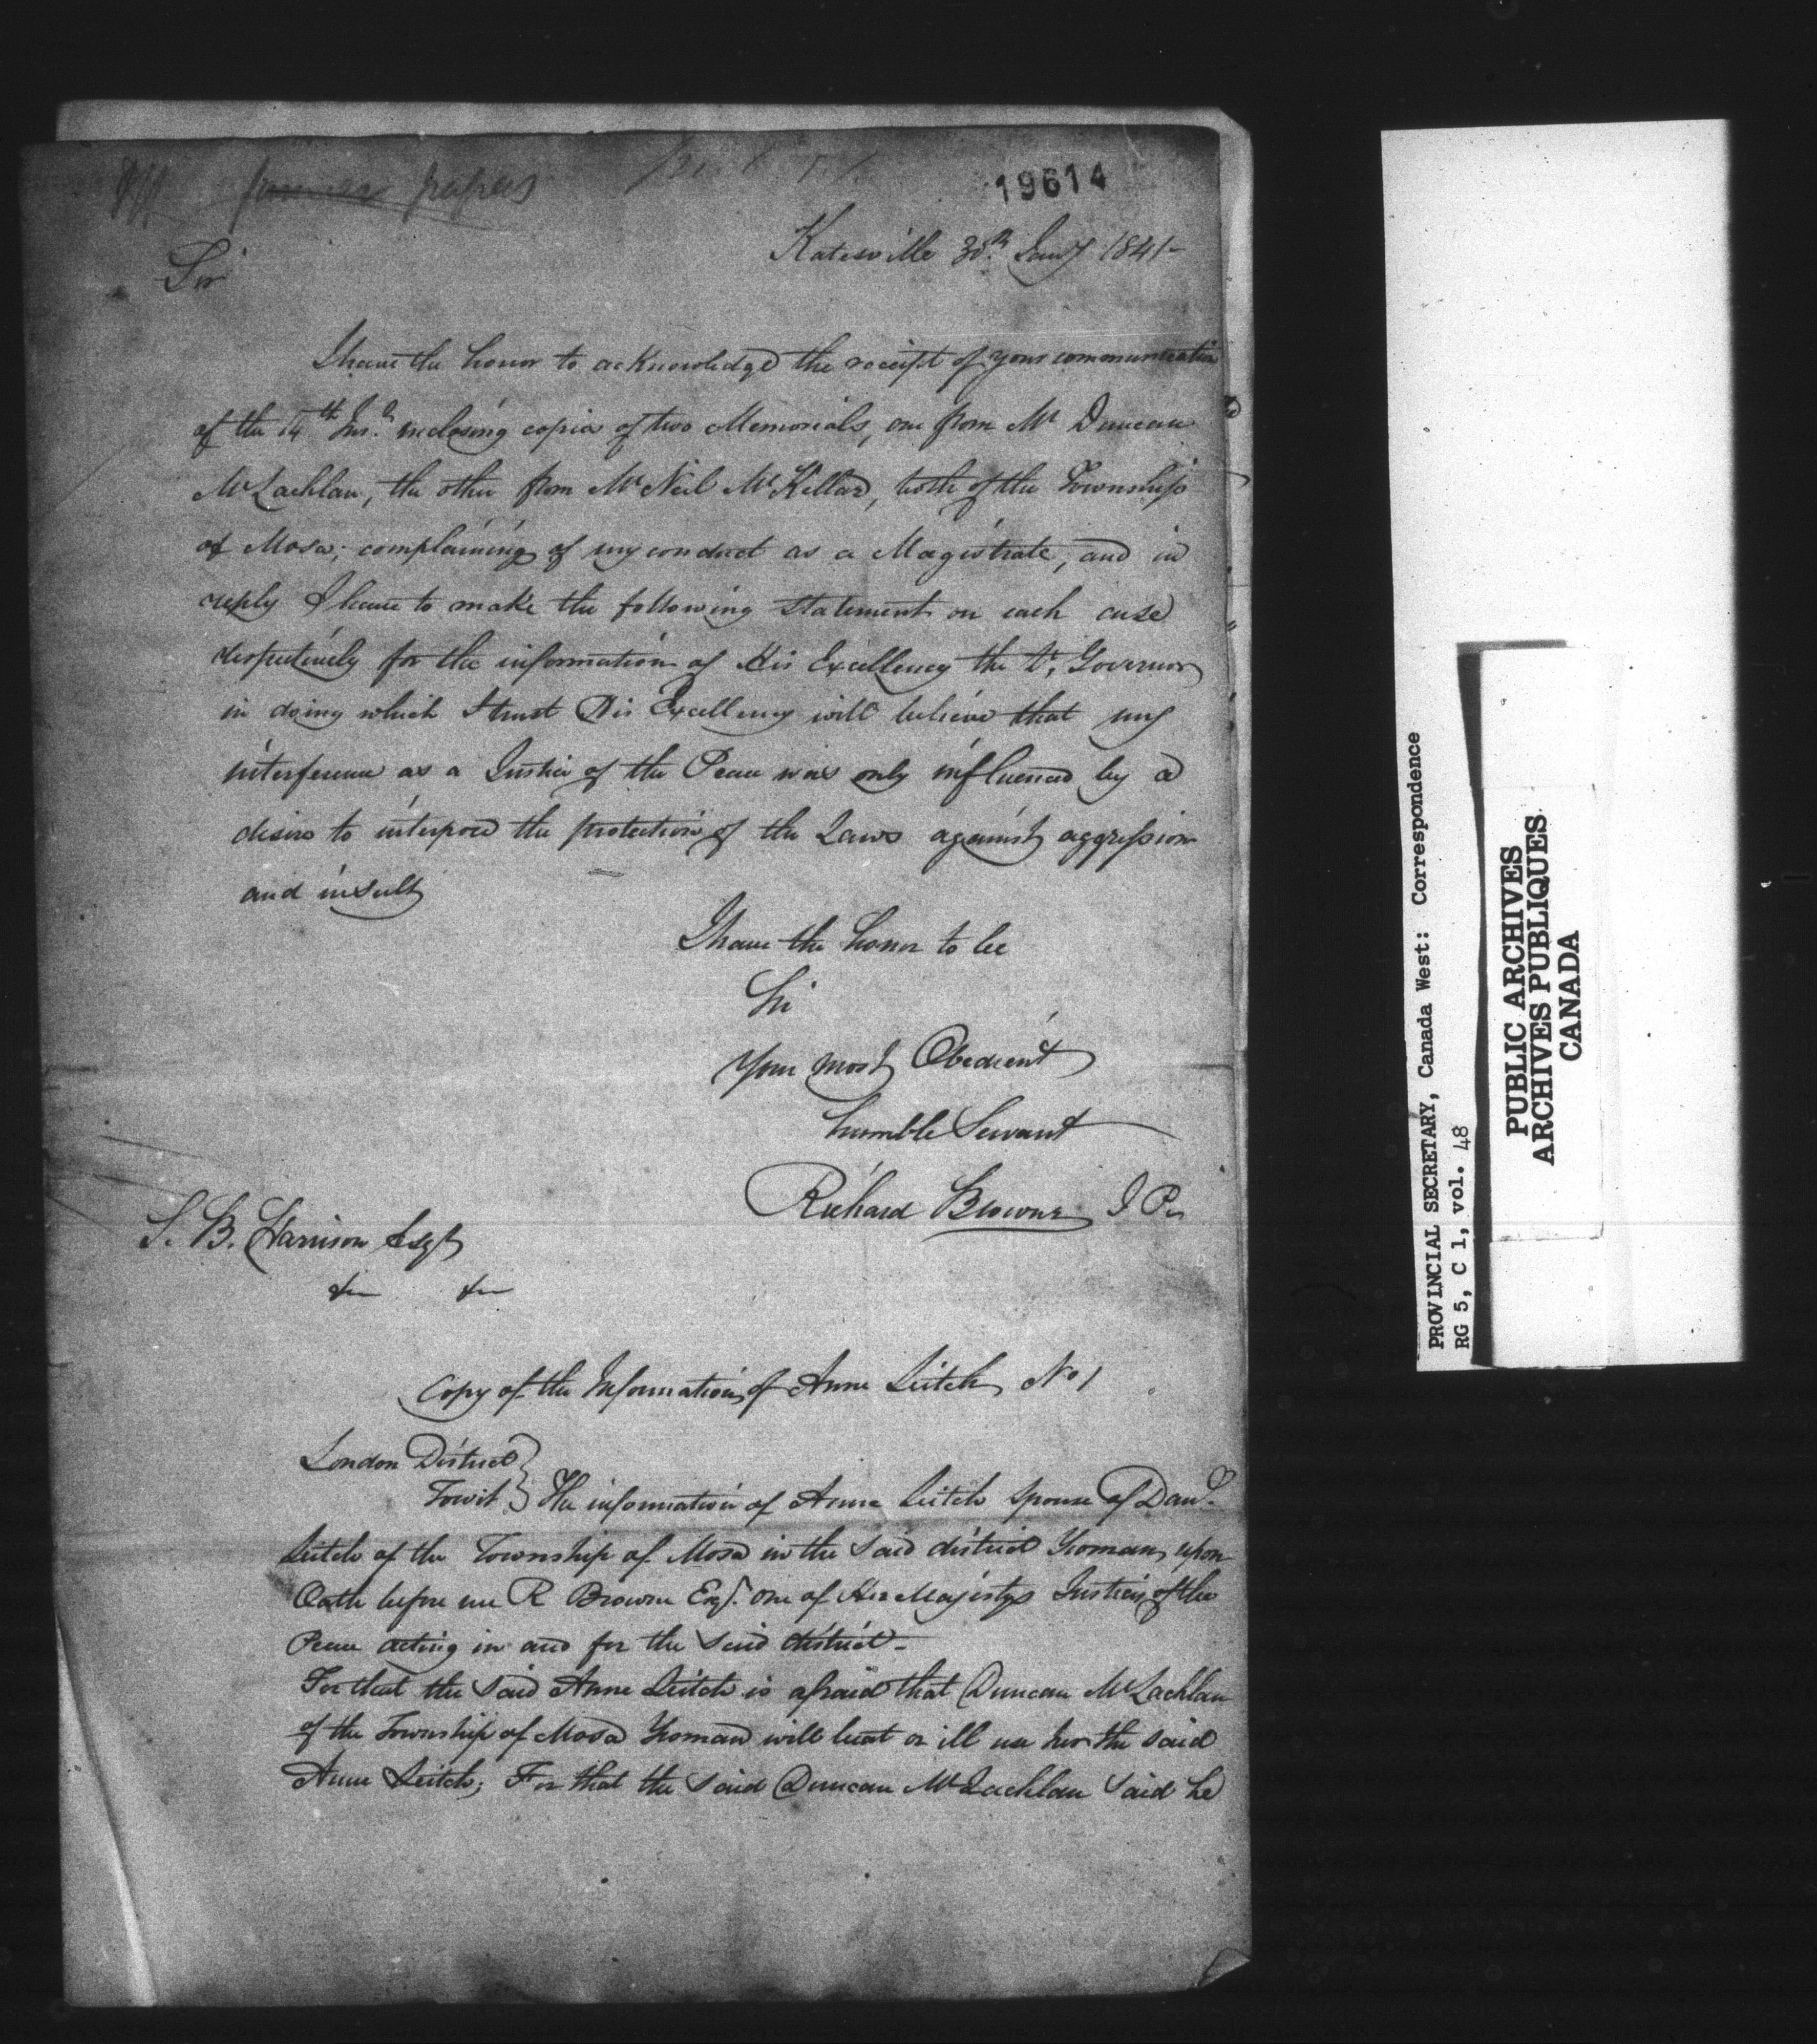 former papers
19614
Katesville 30th Jany 1841-
Sir
I have the honor to acknowledge the receipt of your communication
of the 14th Inst. inclosing copies of two Memorials, one from Mr Duncan
McLachlan, the other from Mr Neil McKellar, both of the Township
of Mosa; complaining of my conduct as a Magistrate, and in
reply I have to make the following statement on each case
respectively for the information of His Excellency the Lt. Governor
in doing which I trust His Excellency will believe that my
interference as a Justice of the Peace was only influenced by a
desire to interpose the protection of the Laws against aggression
and insult
I have the honor to be
Sir
Your most Obedient
humble Servant
Richard Browne J P.
S. B. Harrison Esqr
&c &c
Copy of the Information of Anne Leitch No 1
London District
Towit } The information of Anne Leitch Spouse of Danl.
Leitch of the Township of Mosa in the said district Yeoman, upon
Oath before me R Browne Esqr. one of Her Majestys Justices of the
Peace acting in and for the said district-
For that the said Anne Leitch is afraid that Duncan McLachlan
of the Township of Mosa Yeoman will beat or ill use her the said
Anne Leitch; For that the said Duncan McLachlan said he
PROVINCIAL SECRETARY, Canada West: Correspondence
RG 5, C 1, vol. 48
PUBLIC ARCHIVES
ARCHIVES PUBLIQUES
CANADA